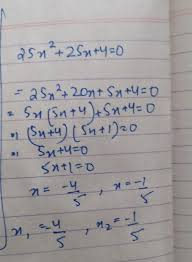 25x² + 25x + 4 = 0
= 25x² + 20x + 5x + 4 = 0
= 5x (5x + 4) + 5x + 4 = 0
⇒ (5x + 4) (5x + 1) = 0
⇒ 5x + 4 = 0
5x + 1 = 0
x = -4/5 , x = -1/5
x₁ = -4/5 , x₂ = -1/5